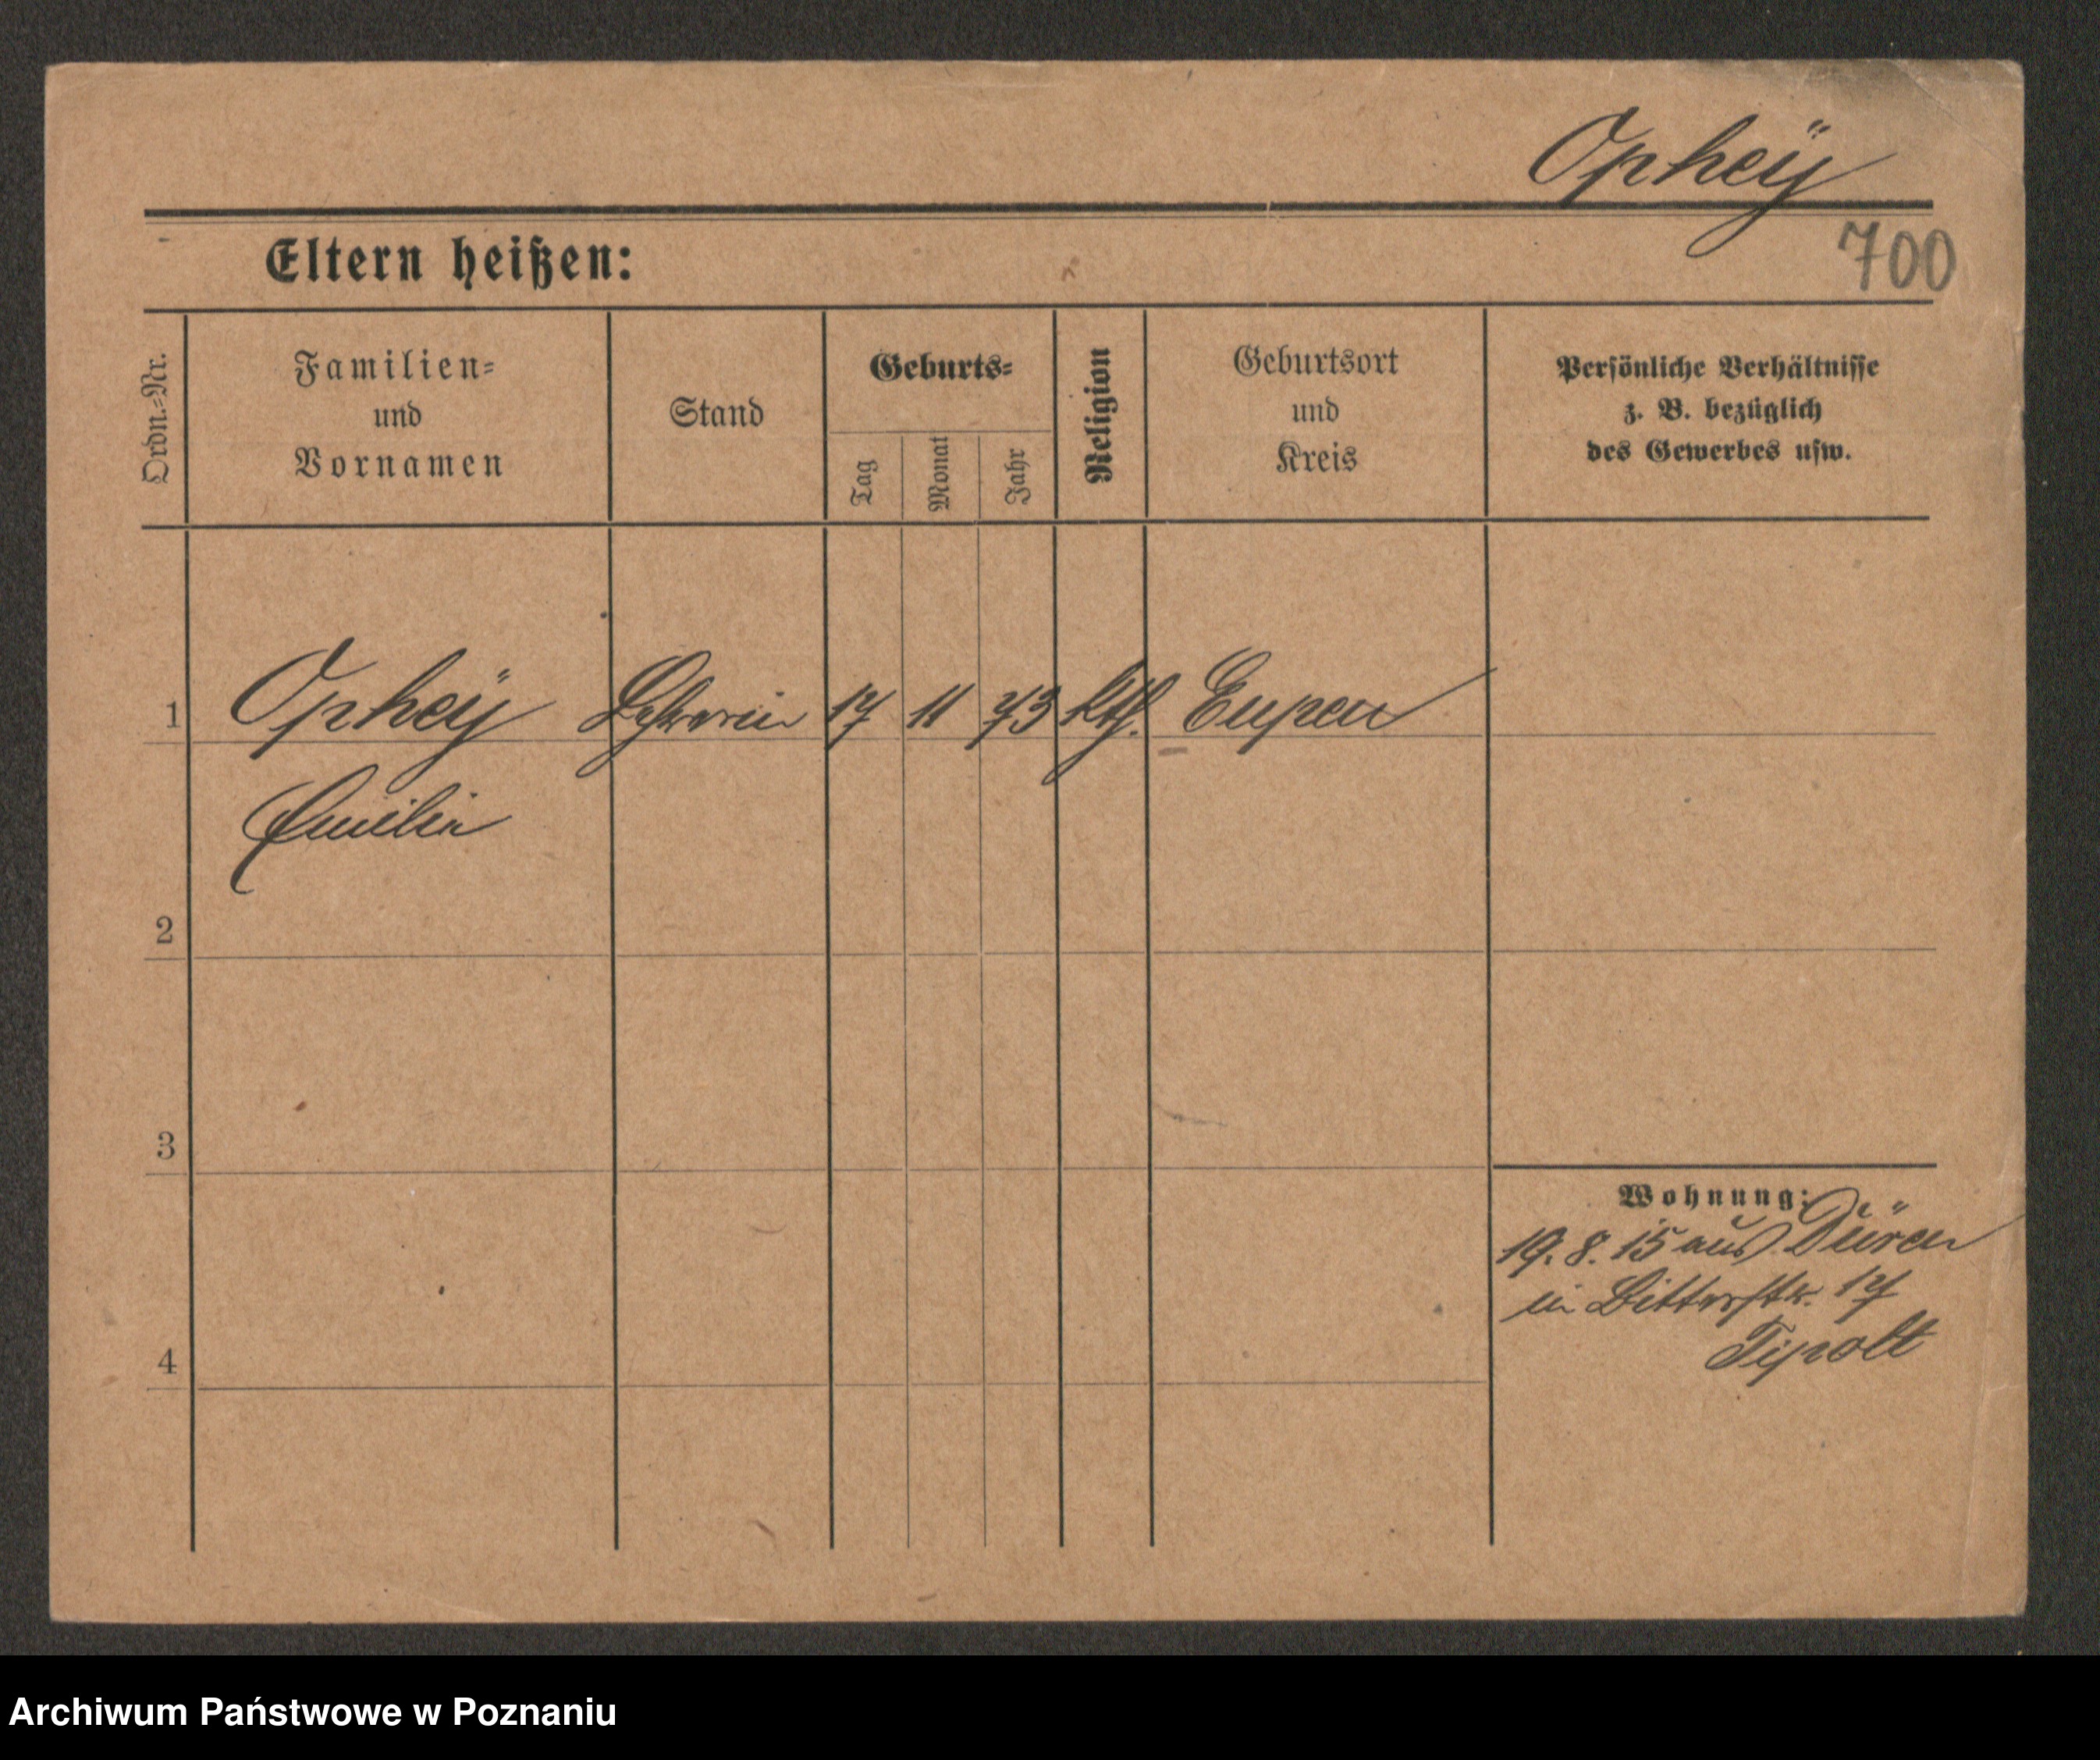 Opheÿ
700
Eltern heißen:
Ordn.-Nr.
Familien-
und
Vornamen
Stand
Geburts-
Tag
Monat
Jahr
Religion
Geburtsort
und
Kreis
Persönliche Verhältnisse
z. B. bezüglich
des Gewerbes usw.
1 Opheÿ Lehrerin 17 11 73 kth. Eupen
Emilie
2
3
4
Wohnung:
19. 8. 15 aus Düren
in Ritterstr. 17
Archiwum Państwowe w Poznaniu